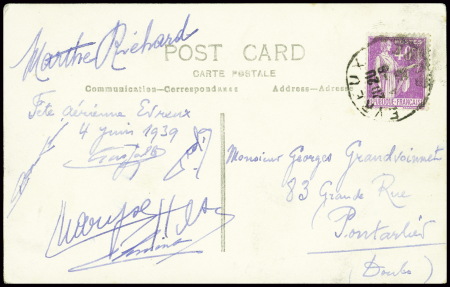 Marthe Richard
POST CARD
CARTE POSTALE
Communication-Correspondance
Address-Adresse
Fête aérienne Evreux
4 juin 1939
Maryse Hilsz
Monsieur Georges Grandvoinnet
83 Grande Rue
Pontarlier
(Doubs)
EVREUX